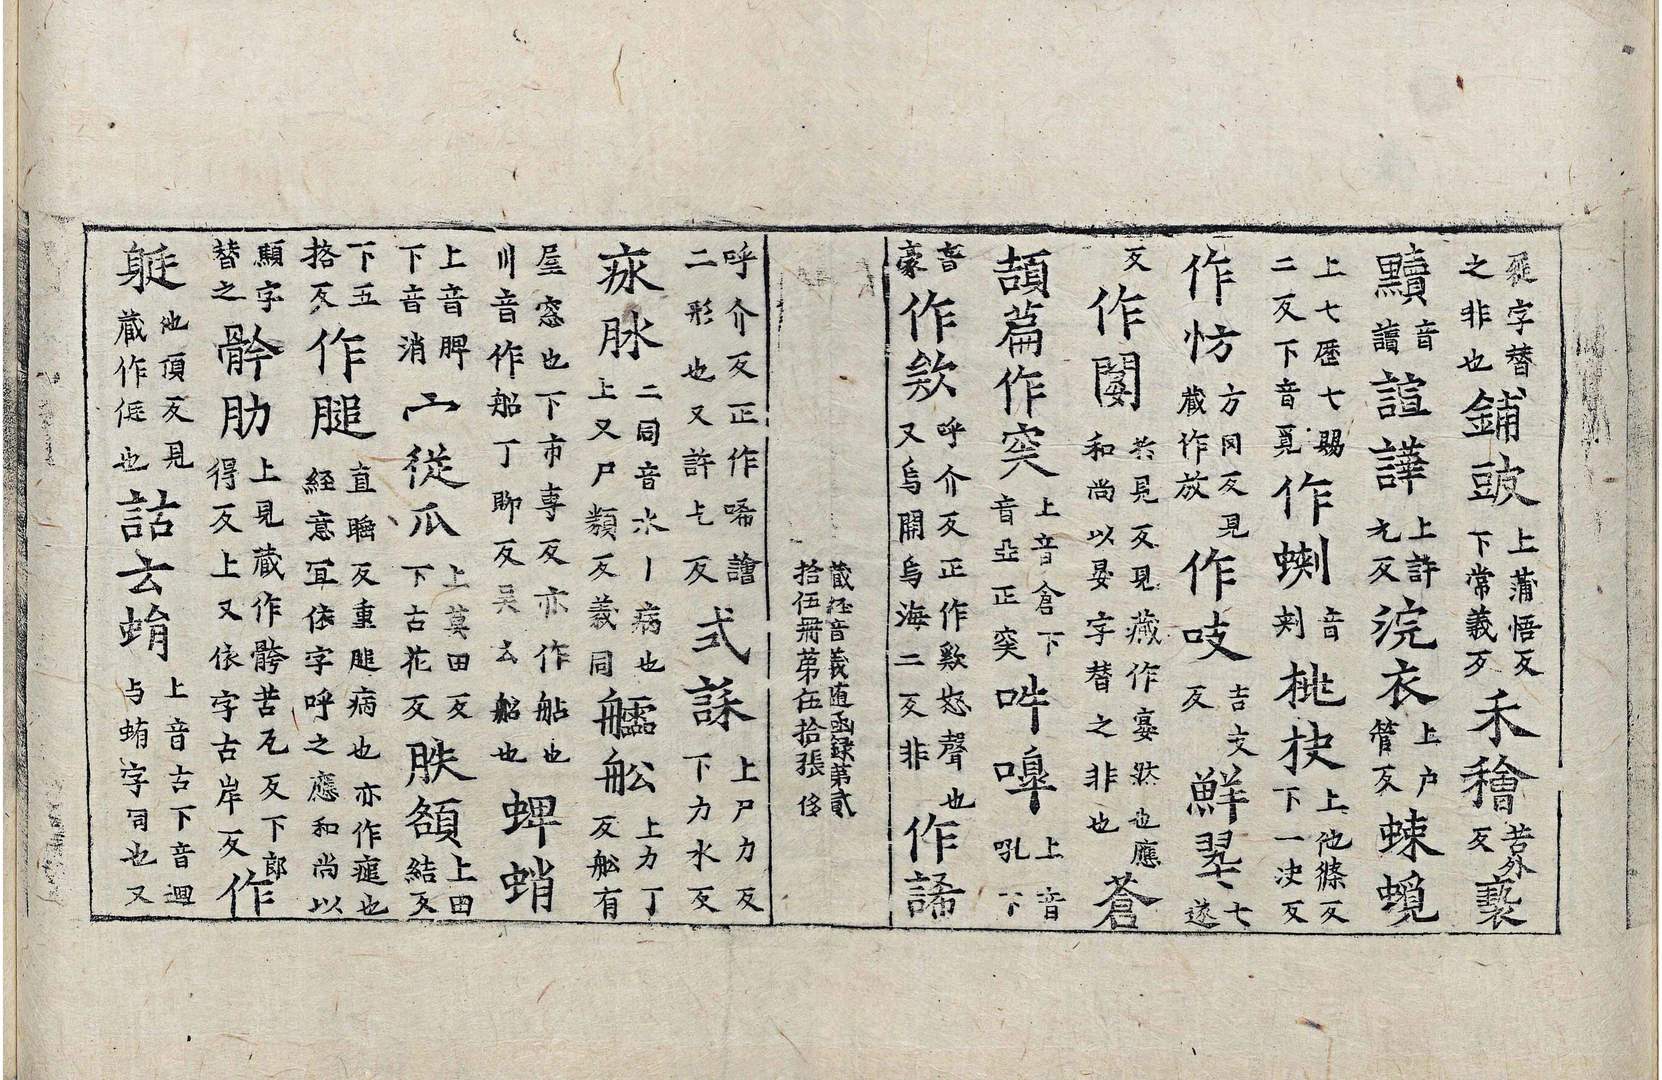 字替之非也鋪豉上蒲悟反下常義反禾穭苦外反褻
黷音讀諠譁上許元反浣衣上户管反蝀蜆
上七歷七賜二反下音覓作蝲音剌桃抉上他條反下一决反
作怲方岡反見藏作放作吱吉文反鮮翆七遂
反作闅共見反見藏作宴然也應和尚以晏字替之非也蒼
頡篇作突上音倉下音亞正突吽嘷上音吼下
音豪作欸呼介反正作歎怒聲也又烏開烏海二反非作諦
藏経音義随函録第貳拾伍冊第伍拾張 侈
呼介反正作唏譮二形也又許乞反式誄上尸力反下力水反
疢脉二同音水丨病也上又尸類反義同艫舩上力丁反舩有
屋窓也下市専反亦作船也川音作船丁聊反吴云船也蜱蛸
上音脾下音消亠從瓜上莫田反下古花反胅額上田結反
下五挌反作膇直睡反重膇病也亦作㿉也経意冝依字呼之應和尚以
顯字替之骻肋上見藏作骻苦瓦反下郎得反上又依字古岸反作
艇他頂反見藏作侹也詁云蛕上音古下音迴与蛕字同也又